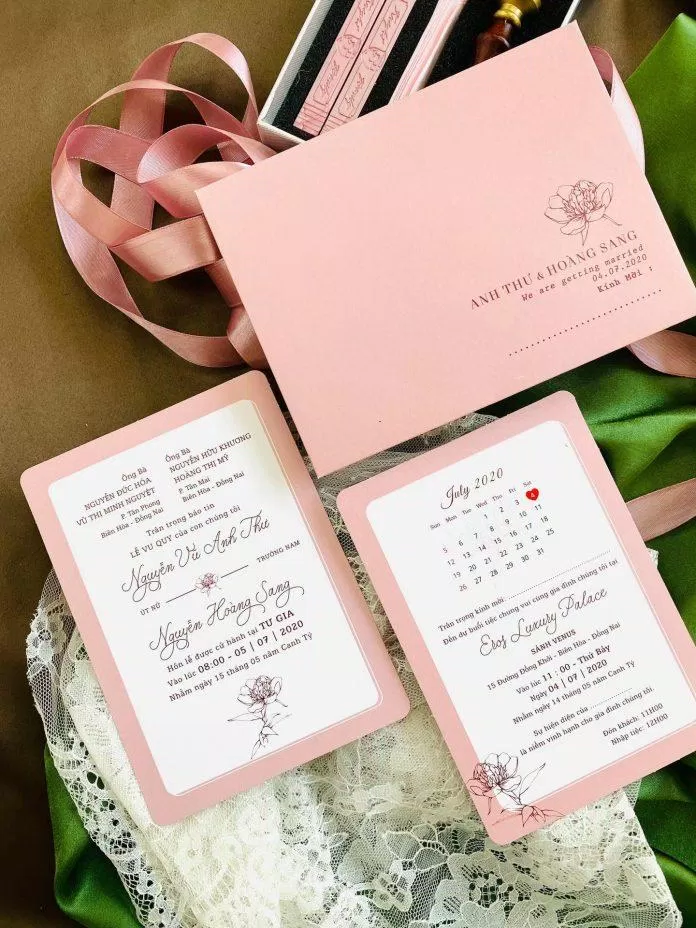 ANH THƯ & HOÀNG SANG
We are getting married
04.07.2020
Kính Mời :
Ông Bà
NGUYỄN ĐỨC HÓA
VŨ THỊ MINH NGUYỆT
P. Tân Phong
Biên Hòa - Đồng Nai
Ông Bà
NGUYỄN HỮU KHƯƠNG
HOÀNG THỊ MỸ
P. Tân Mai
Biên Hòa - Đồng Nai
Trân trọng báo tin
LỄ VU QUY của con chúng tôi
Nguyễn Vũ Anh Thư
ÚT NỮ
TRƯỞNG NAM
Nguyễn Hoàng Sang
Hôn lễ được cử hành tại TƯ GIA
Vào lúc 08:00 - 05 | 07 | 2020
Nhằm ngày 15 tháng 05 năm Canh Tý
July 2020
Sun Mon Tue Wed Thu Fri Sat
1 2 3 4
5 6 7 8 9 10 11
12 13 14 15 16 17 18
19 20 21 22 23 24 25
26 27 28 29 30 31
Trân trọng kính mời:
Đến dự buổi tiệc chung vui cùng gia đình chúng tôi tại
Eros Luxury Palace
SẢNH VENUS
15 Đường Đồng Khởi - Biên Hòa - Đồng Nai
Vào lúc 11 : 00 - Thứ Bảy
Ngày 04 | 07 | 2020
Nhằm ngày 14 tháng 05 năm Canh Tý
Sự hiện diện của
là niềm vinh hạnh cho gia đình chúng tôi.
Đón khách: 11H00
Nhập tiệc: 12H00